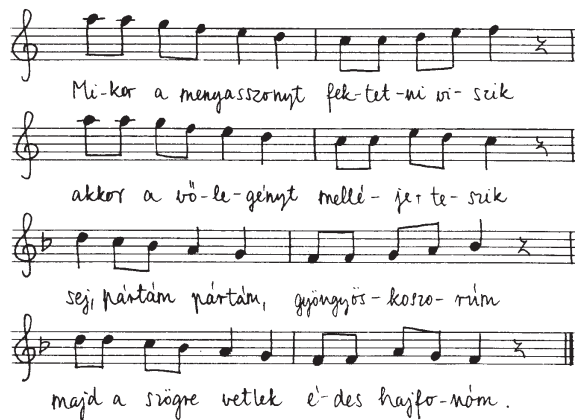 Mi-kor a menyasszonyt fek-tet-ni vi-szik
akkor a vő-le-gényt mellé-je, te-szik
sej, pártám pártám, gyöngyös-koszo-rúm
majd a szögre vetlek é-des hajfo-nóm.